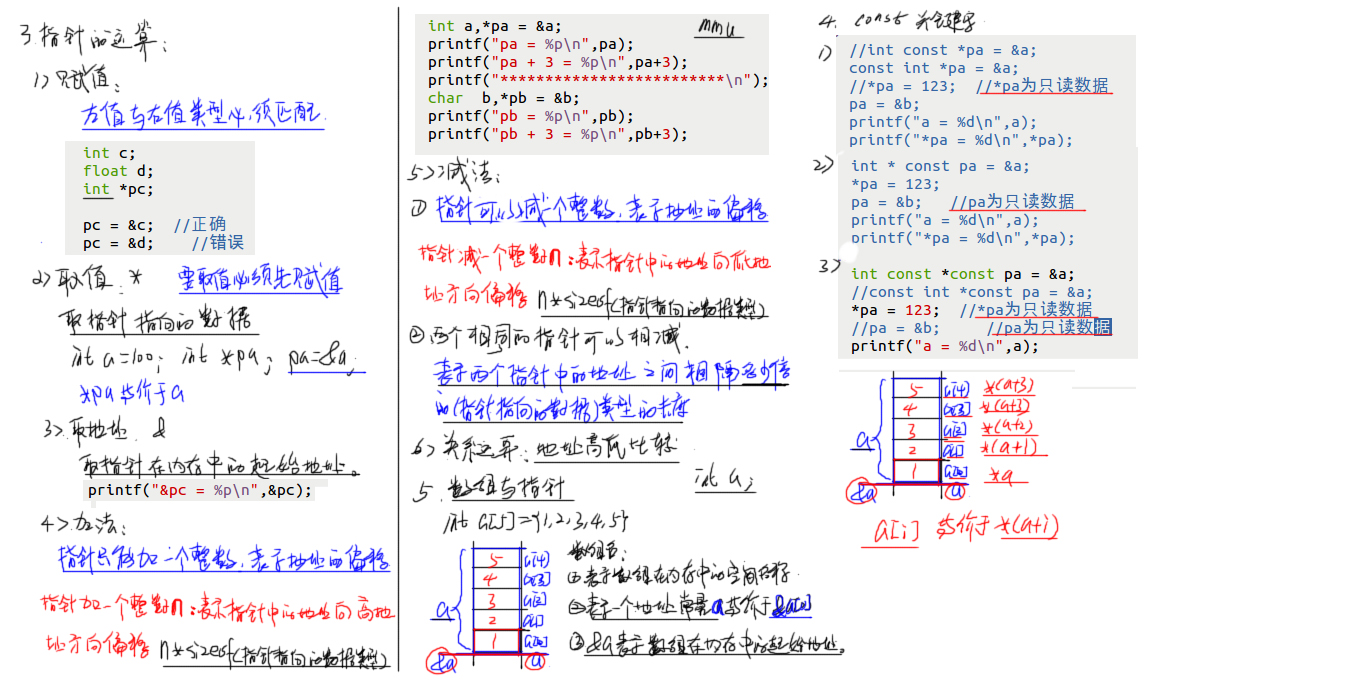 3.指针的运算:
1)赋值:
左值与右值类型必须匹配.
int c;
float d;
int *pc;
pc = &c;  //正确
pc = &d;    //错误
2>取值: *  要取值必须先赋值
取指针指向的数据
int a=100; int *pa; pa=&a;
*pa等价于a
3>.取地址 &
取指针在内存中的起始地址。
printf("&pc = %p\n",&pc);
4>.加法:
指针只能加一个整数,表示地址的偏移
指针加一个整数n:表示指针中的地址向高地
址方向偏移 n*sizeof(指针指向的数据类型)
int a,*pa = &a;
mmu
printf("pa = %p\n",pa);
printf("pa + 3 = %p\n",pa+3);
printf("*************************\n");
char  b,*pb = &b;
printf("pb = %p\n",pb);
printf("pb + 3 = %p\n",pb+3);
5>减法:
① 指针可以减一个整数,表示地址的偏移
指针减一个整数n:表示指针中的地址向低地
址方向偏移 n*sizeof(指针指向的数据类型)
②两个相同的指针可以相减.
表示两个指针中的地址之间相隔多少倍
的(指针指向的数据)类型的长度
6>关系运算:地址高低比较
int a;
5.数组与指针
int a[5]={1,2,3,4,5}
5 a[4]
4 a[3]
3 a[2]
a
2 a[1]
1 a[0]
&a a
数组名:
①表示数组在内存中的空间名称
②表示一个地址常量a等价于&a[0]
③&a表示数组在内存中的起始地址。
4. const 关键字
1)
//int const *pa = &a;
const int *pa = &a;
//*pa = 123;  //*pa为只读数据
pa = &b;
printf("a = %d\n",a);
printf("*pa = %d\n",*pa);
2>
int * const pa = &a;
*pa = 123;
pa = &b;   //pa为只读数据
printf("a = %d\n",a);
printf("*pa = %d\n",*pa);
3>
int const *const pa = &a;
//const int *const pa = &a;
*pa = 123;  //*pa为只读数据
//pa = &b;     //pa为只读数据
printf("a = %d\n",a);
5 a[4] *(a+3)
4 a[3] *(a+3)
3 a[2] *(a+2)
a
2 a[1] *(a+1)
1 a[0] *a
&a a
a[i] 等价于 *(a+i)